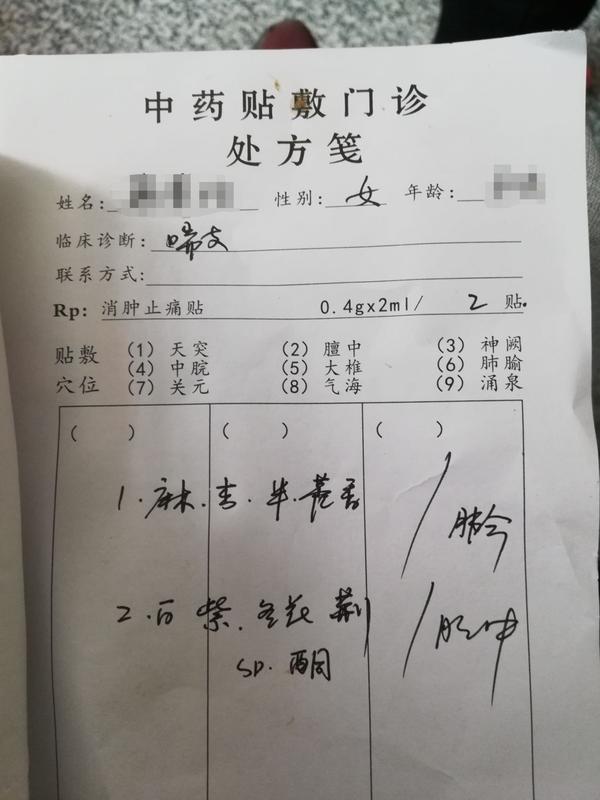 中药贴敷门诊
处方笺
姓名: 性别: 女 年龄:
临床诊断: 喘支
联系方式:
Rp: 消肿止痛贴 0.4gx2ml/ 2 贴.
贴敷 (1) 天突 (2) 膻中 (3) 神阙
(4) 中脘 (5) 大椎 (6) 肺腧
穴位 (7) 关元 (8) 气海 (9) 涌泉
( ) ( ) ( )
1. 麻. 杏. 半.
2. 百 紫. 冬花 荆
SP. 酮